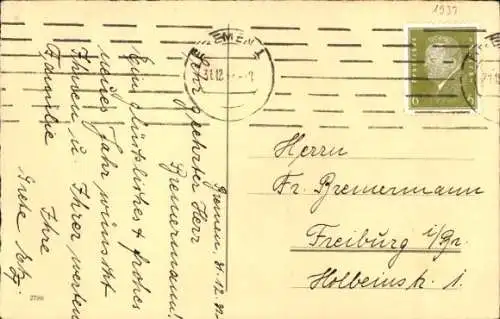 1931
BREMEN 1
31.12.
6
Bremen, 31.12.31.
Sehr geehrter Herr
Bremermann!
Ein glückliches & frohes
neues Jahr wünscht
Ihnen u. Ihrer werten
Familie
Ihre
Grete
Herrn
Fr. Bremermann
Freiburg i/Br.
Holbeinstr. 1.